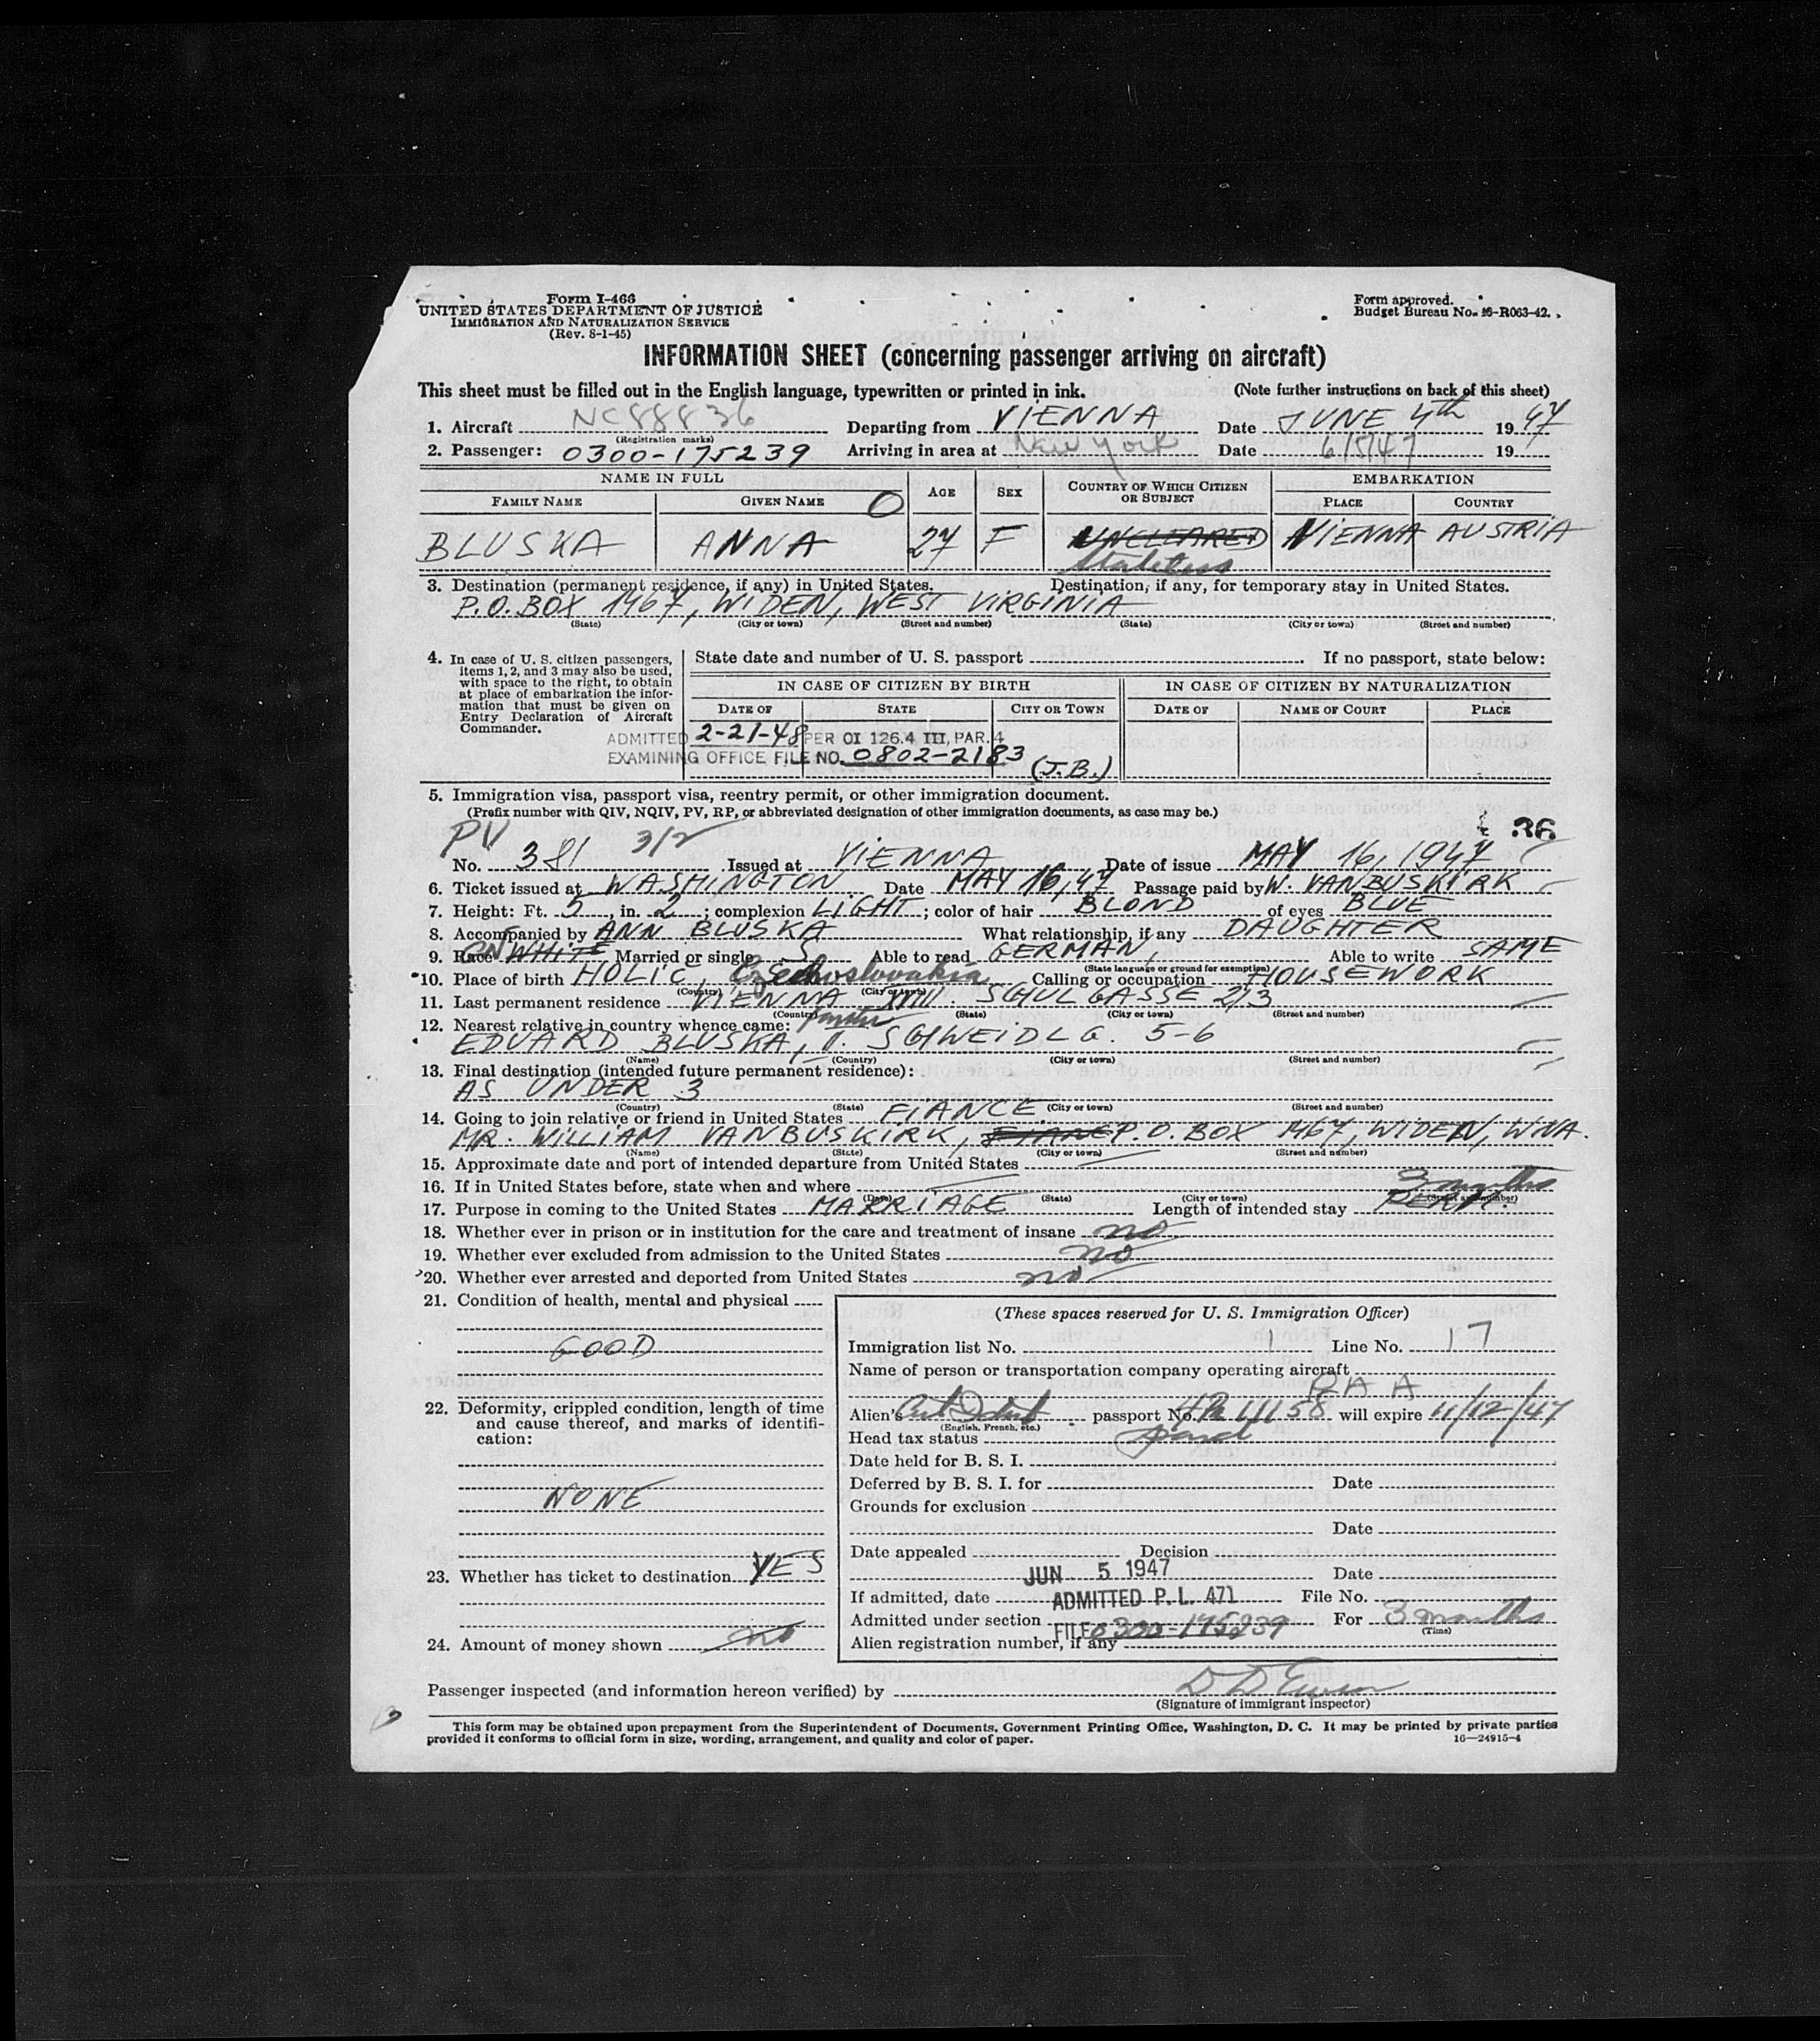 Form I-466
UNITED STATES DEPARTMENT OF JUSTICE
IMMIGRATION AND NATURALIZATION SERVICE
(Rev. 8-1-45)
Form approved.
Budget Bureau No. 16-R063-42.
INFORMATION SHEET (concerning passenger arriving on aircraft)
This sheet must be filled out in the English language, typewritten or printed in ink. (Note further instructions on back of this sheet)
1. Aircraft NC88836 Departing from VIENNA Date JUNE 4th 1947
(Registration marks)
2. Passenger: 0300-175239 Arriving in area at New York Date 6/5/47 19
NAME IN FULL AGE SEX COUNTRY OF WHICH CITIZEN OR SUBJECT EMBARKATION
FAMILY NAME GIVEN NAME PLACE COUNTRY
BLUSKA ANNA 27 F UNCLEARED VIENNA AUSTRIA
Stateless
3. Destination (permanent residence, if any) in United States. Destination, if any, for temporary stay in United States.
P.O. BOX 1467, WIDEN, WEST VIRGINIA
(State) (City or town) (Street and number) (State) (City or town) (Street and number)
4. In case of U. S. citizen passengers, items 1, 2, and 3 may also be used, with space to the right, to obtain at place of embarkation the information that must be given on Entry Declaration of Aircraft Commander.
State date and number of U. S. passport If no passport, state below:
IN CASE OF CITIZEN BY BIRTH IN CASE OF CITIZEN BY NATURALIZATION
DATE OF STATE CITY OR TOWN DATE OF NAME OF COURT PLACE
ADMITTED 2-21-48 PER OI 126.4 III, PAR. 4
EXAMINING OFFICE FILE NO. 0802-2183
(J.B.)
5. Immigration visa, passport visa, reentry permit, or other immigration document.
(Prefix number with QIV, NQIV, PV, RP, or abbreviated designation of other immigration documents, as case may be.)
PV 3/2 36
No. 381 Issued at VIENNA Date of issue MAY 16, 1947
6. Ticket issued at WASHINGTON Date MAY 16, 47 Passage paid by W. VANBUSKIRK
7. Height: Ft. 5, in. 2; complexion LIGHT; color of hair BLOND of eyes BLUE
8. Accompanied by ANN BLUSKA What relationship, if any DAUGHTER
9. Race WHITE Married or single S Able to read GERMAN, Able to write SAME
(State language or ground for exemption)
10. Place of birth HOLIC, Czechoslovakia Calling or occupation HOUSEWORK
(Country) (City or town)
11. Last permanent residence VIENNA XVIII. SCHULGASSE 2/3
(Country) (State) (City or town) (Street and number)
12. Nearest relative in country whence came:
EDUARD BLUSKA, SCHWEIDLG. 5-6
(Name) (Country) (City or town) (Street and number)
13. Final destination (intended future permanent residence):
AS UNDER 3
(Country) (State) (City or town) (Street and number)
14. Going to join relative or friend in United States FIANCE
MR. WILLIAM VANBUSKIRK, P.O. BOX 1467, WIDEN, W.VA.
(Name) (State) (City or town) (Street and number)
15. Approximate date and port of intended departure from United States
16. If in United States before, state when and where
(Date) (State) (City or town) (Street and number)
3 months
17. Purpose in coming to the United States MARRIAGE Length of intended stay PERM.
18. Whether ever in prison or in institution for the care and treatment of insane no
19. Whether ever excluded from admission to the United States no
20. Whether ever arrested and deported from United States no
21. Condition of health, mental and physical
GOOD
22. Deformity, crippled condition, length of time and cause thereof, and marks of identification:
NONE
23. Whether has ticket to destination YES
24. Amount of money shown no
(These spaces reserved for U. S. Immigration Officer)
Immigration list No. 1 Line No. 17
Name of person or transportation company operating aircraft
PAA
Alien's passport No. 111158 will expire 11/12/47
(English, French, etc.)
Head tax status
Date held for B. S. I.
Deferred by B. S. I. for Date
Grounds for exclusion
Date
Date appealed Decision
JUN 5 1947 Date
If admitted, date ADMITTED P. L. 471 File No.
Admitted under section FILE 0300-175239 For 3 months
(Time)
Alien registration number, if any
Passenger inspected (and information hereon verified) by
(Signature of immigrant inspector)
This form may be obtained upon prepayment from the Superintendent of Documents, Government Printing Office, Washington, D. C. It may be printed by private parties
provided it conforms to official form in size, wording, arrangement, and quality and color of paper. 16—24915-4